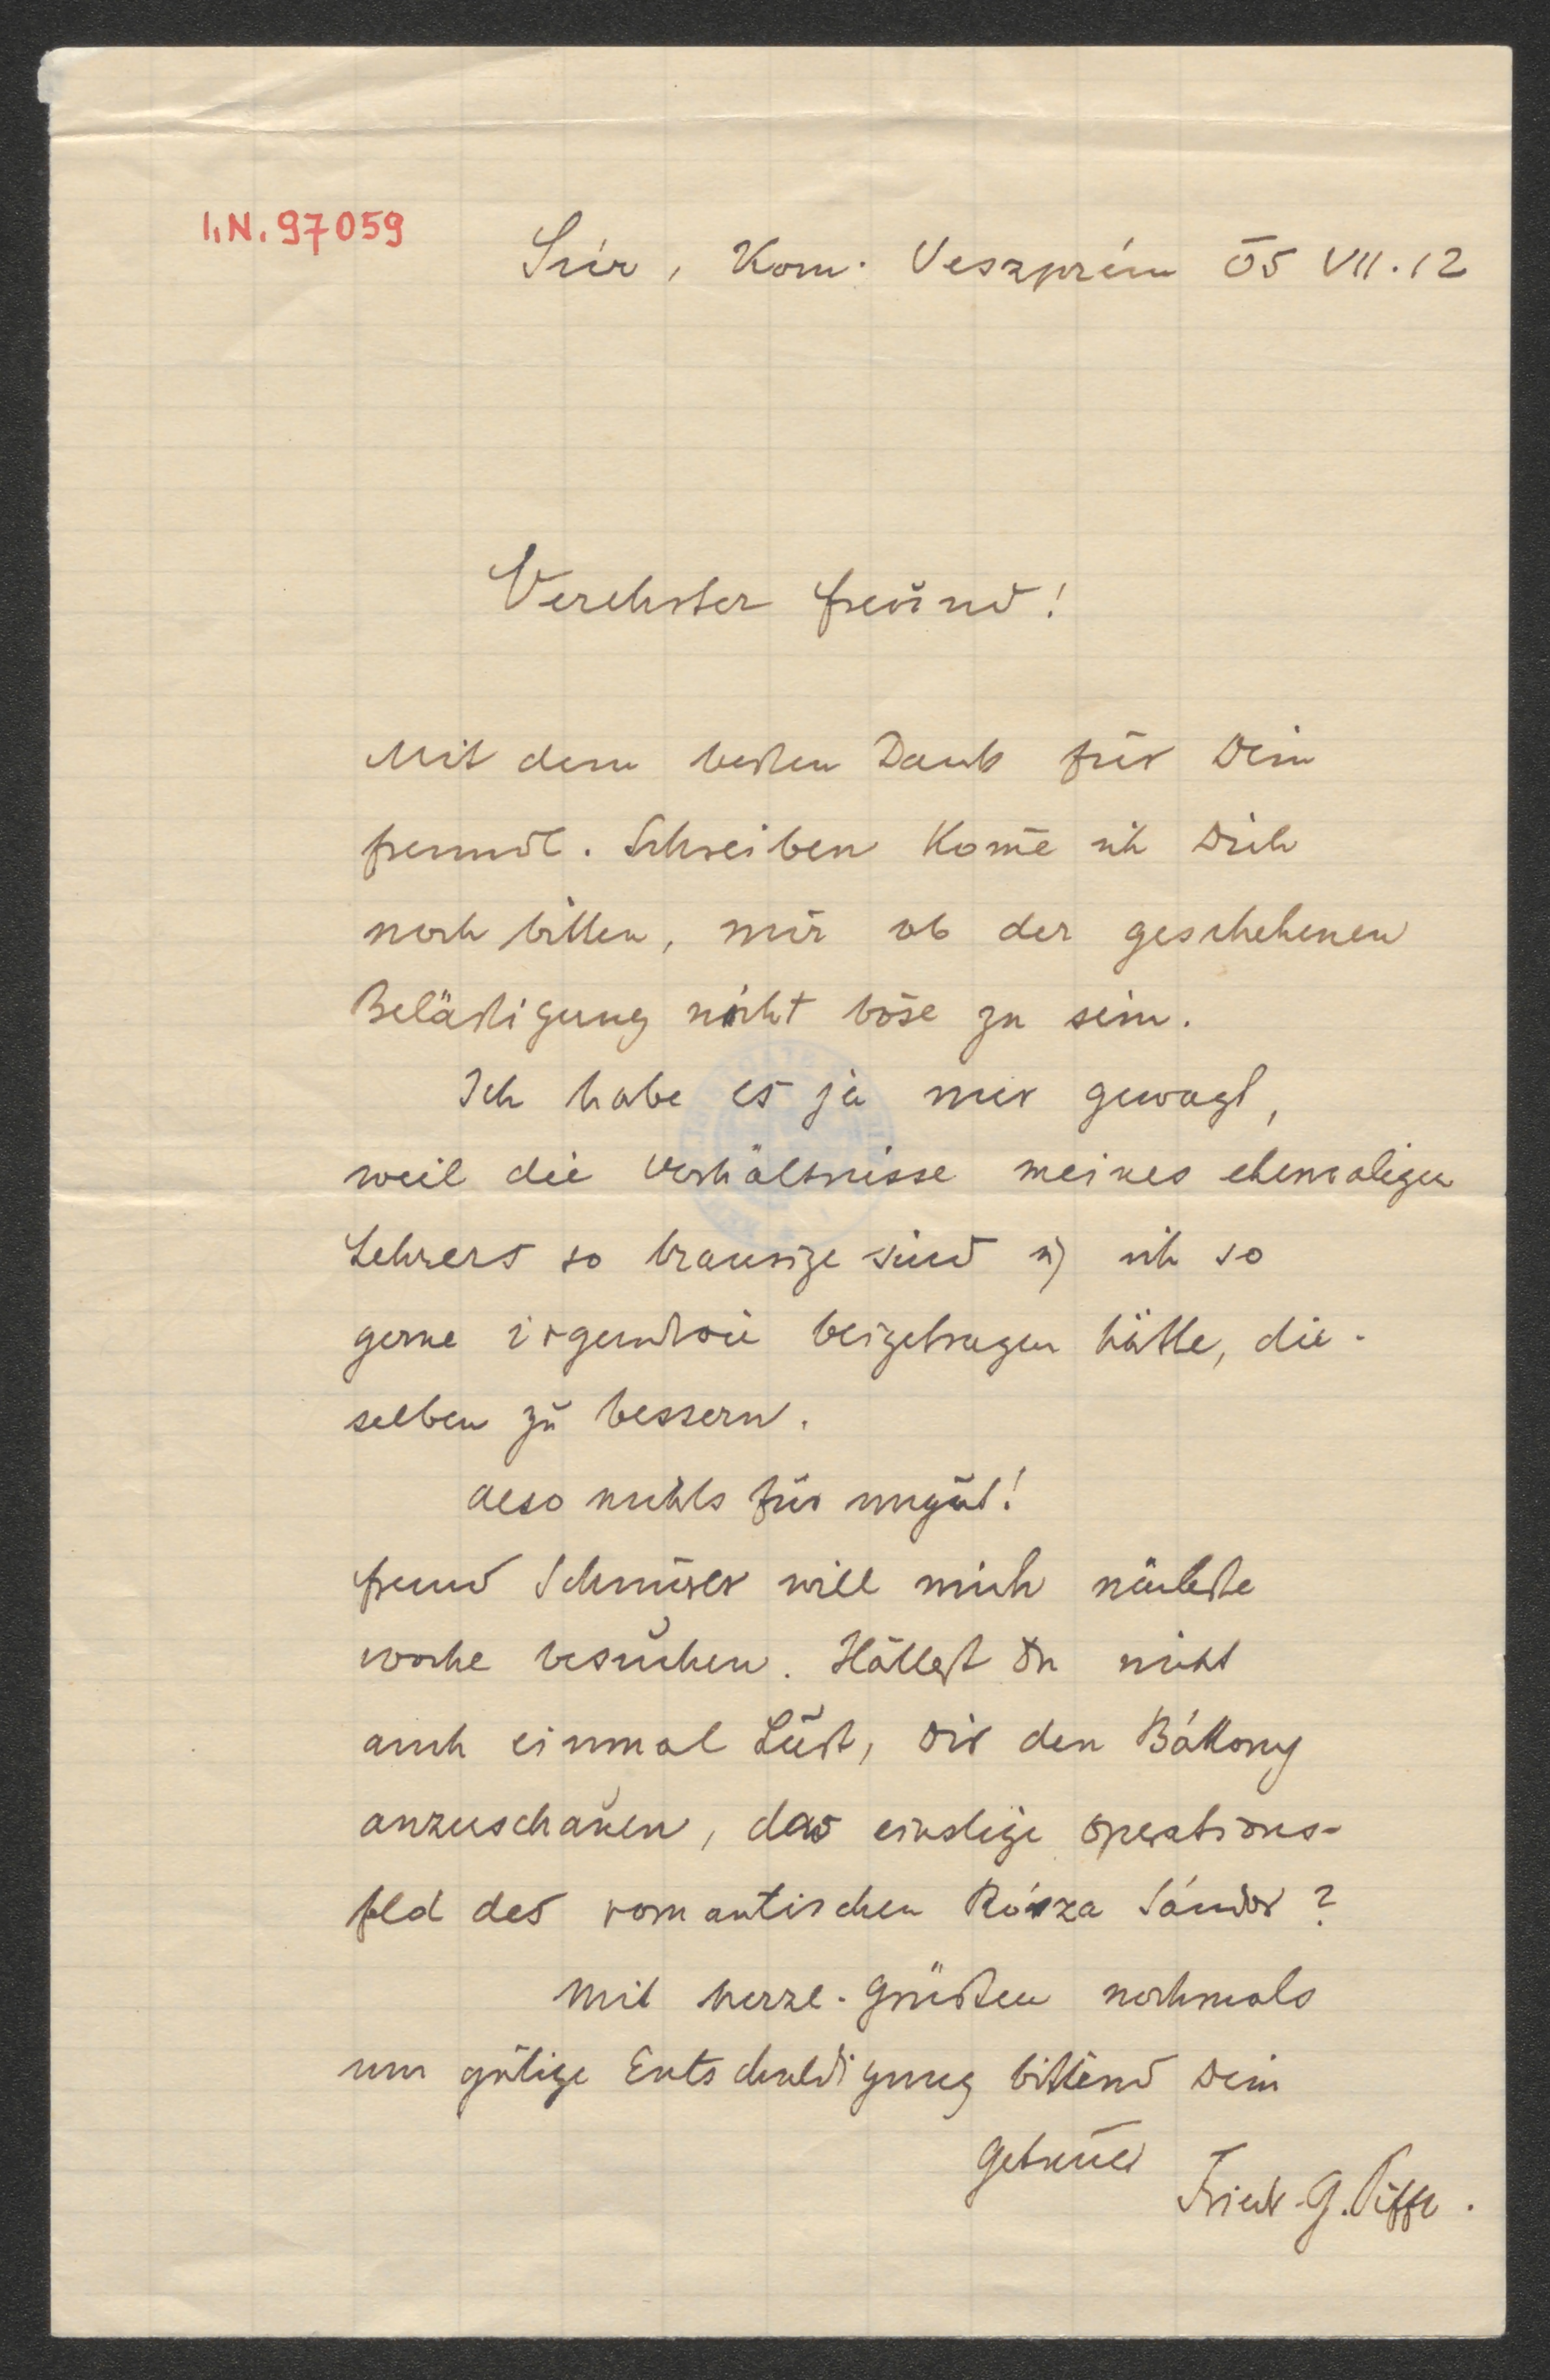 I.N. 97059
Súr, Kom. Veszprém 05 VII. 12
Verehrter Freund!
Mit dem besten Dank für Dein
freundl. Schreiben kom̄e ich Dich
noch bitten, mir ob der geschehenen
Belästigung nicht böse zu sein.
Ich habe es ja nur gewagt,
weil die Verhältnisse meines ehemaligen
Lehrers so traurige sind u) ich so
gerne irgendwie beigetragen hätte, die-
selben zu bessern.
Also nichts für ungut!
Freund Schnürer will mich nächste
Woche besuchen. Hättest Du nicht
auch einmal Lust, Dir den Bákony
anzuschauen, das einstige Operations-
feld des romantischen Rósza Sándor?
Mit herzl. Grüßen nochmals
um gütige Entschuldigung bittend Dein
getreuer
Friedr. G. Piffl.